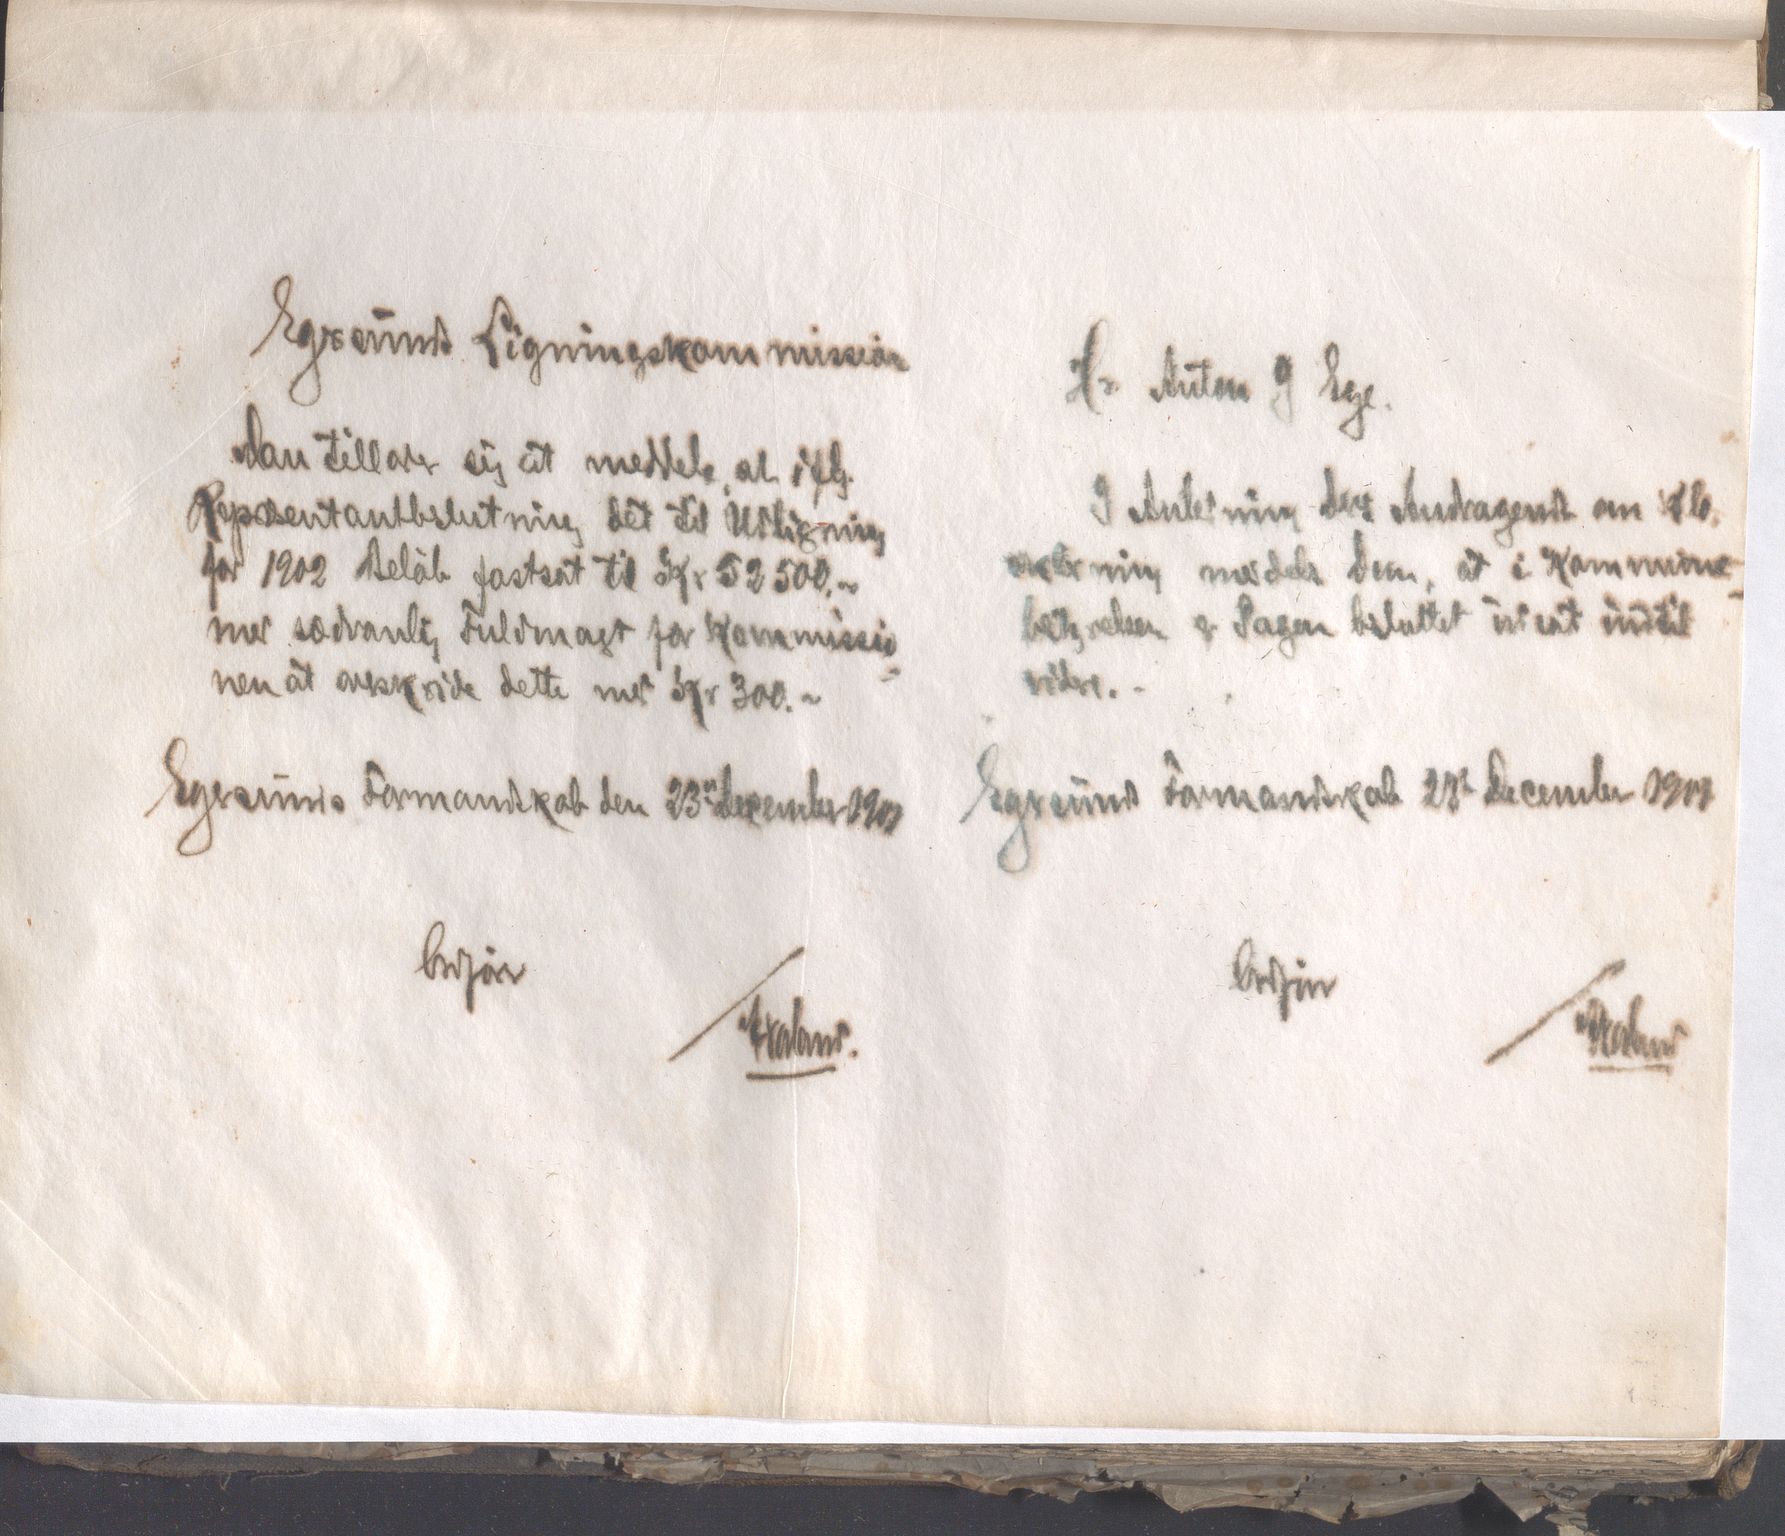 Egersunds Ligningskommission
Man tillader sig at meddele, at iflg.
Repræsentantbeslutning det til Udligning
for 1902 Beløb fastsat til Kr 52500.-
med sædvanlig Fuldmagt for Kommissio
nen at overskride dette med Kr 300.-
Egersunds Formandskab den 23de December 1901
Ordfører
Aaland.
Hr Anton J Ege.
I Anledning Deres Andragende om
meddeles Dem, at i Kommune
bestyrelsen er Sagen besluttet udsat indtil
videre. -
Egersunds Formandskab 23de December 1901
Ordfører
Aaland